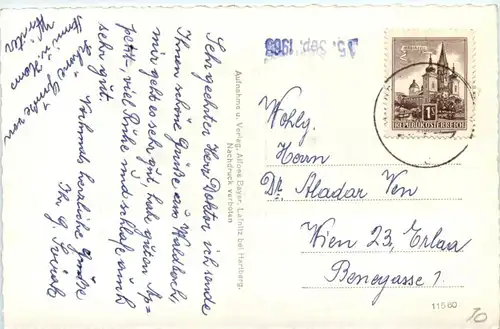 Sehr geehrter Herr Doktor ich sende
Ihnen schöne Grüße aus Waldbach,
mir geht es sehr gut, habe guten Ap-
petit, viel Ruhe und schlafe auch
sehr gut.
Nochmals herzliche Grüße
Ihr G.
Liebe Grüße von
Aufnahme u. Verlag, Alfons Bayer, Lafnitz bei Hartberg.
Nachdruck verboten
5. Sep. 1968
1S
REPUBLIK ÖSTERREICH
Wohlg.
Herrn
Dr. Aladar Ven
Wien 23, Erlaa
Benegasse 1
11560
10